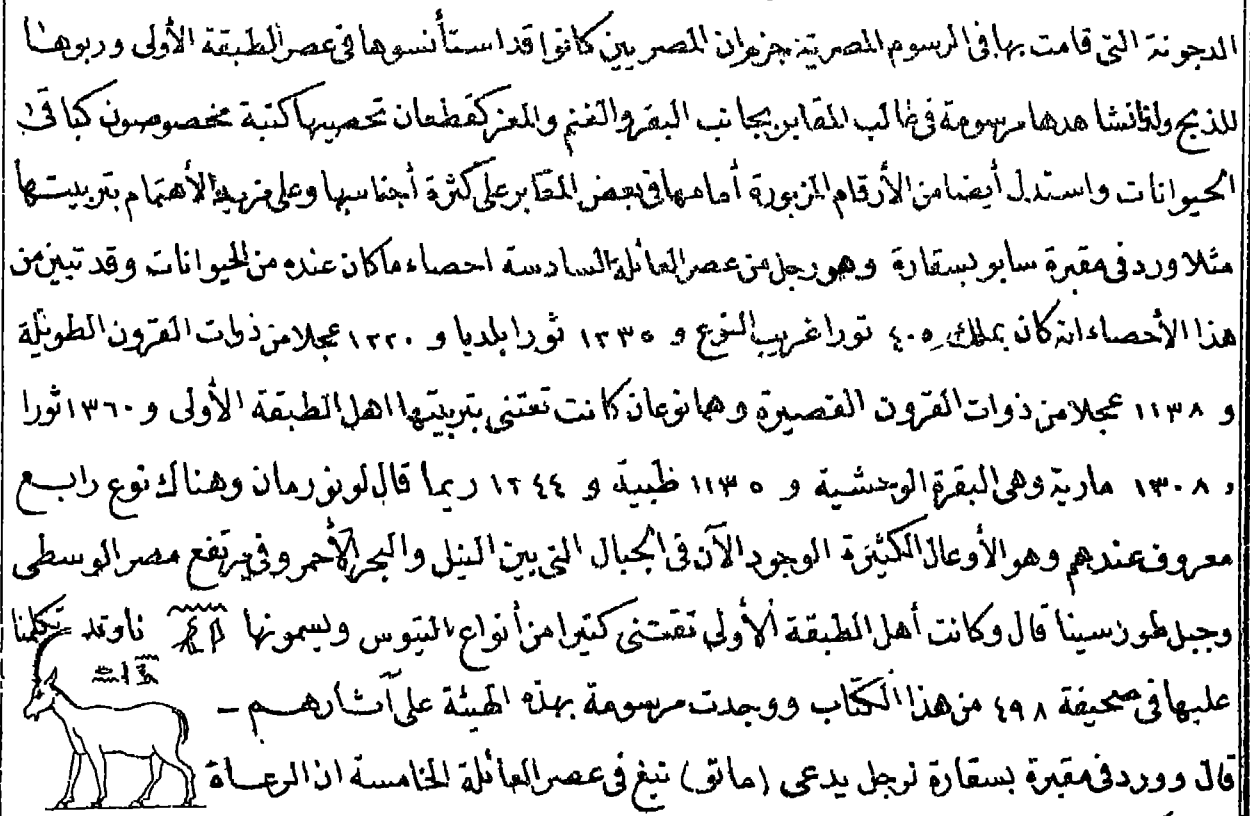 الدجونة التى قامت بها فى الرسوم المصرية جزم ان المصريين كانوا قد استأنسوها فى عصر الطبقة الأولى وربوها
للذبح ولذا نشاهدها مرسومة فى غالب المقابر بجانب البقر والغنم والمعز كقطعان تحصيها كتبة مخصوصون كباقى
الحيوانات واستدل أيضا من الأرقام المزبورة أمامها فى بعض المقابر على كثرة أجناسها وعلى مزيد الأهتمام بتربيتها
مثلا ورد فى مقبرة سابو بسقارة وهو رجل من عصر العائلة السادسة احصاء ما كان عنده من الحيوانات وقد تبين من
هذا الأحصاء انه كان يملك ٤٠٥ ثورا غريب النوع و ١٢٣٥ ثورا بلديا و ١٢٢٠ عجلا من ذوات القرون الطويلة
و ١١٣٨ عجلا من ذوات القرون القصيرة وهما نوعان كانت تعتنى بتربيتها اهل الطبقة الأولى و ١٣٦٠ ثورا
و ١٣٠٨ مارية وهى البقرة الوحشية و ١١٣٥ ظبية و ١٢٤٤ ريما قال لونورمان وهناك نوع رابع
معروف عندهم وهو الأوعال الكثيرة الوجود الآن فى الجبال التى بين النيل والبحر الأحمر وفى مرتفع مصر الوسطى
وجبل طور سينا قال وكانت أهل الطبقة الأولى تقتنى كثيرا من أنواع التيوس ويسمونها ناو وقد تكلمنا
عليها فى صحيفة ٤٩٨ من هذا الكتاب ووجدت مرسومة بهذه الهيئة على آثارهم –
قال وورد فى مقبرة بسقارة لرجل يدعى (مانو) نبغ فى عصر العائلة الخامسة ان الرعاة